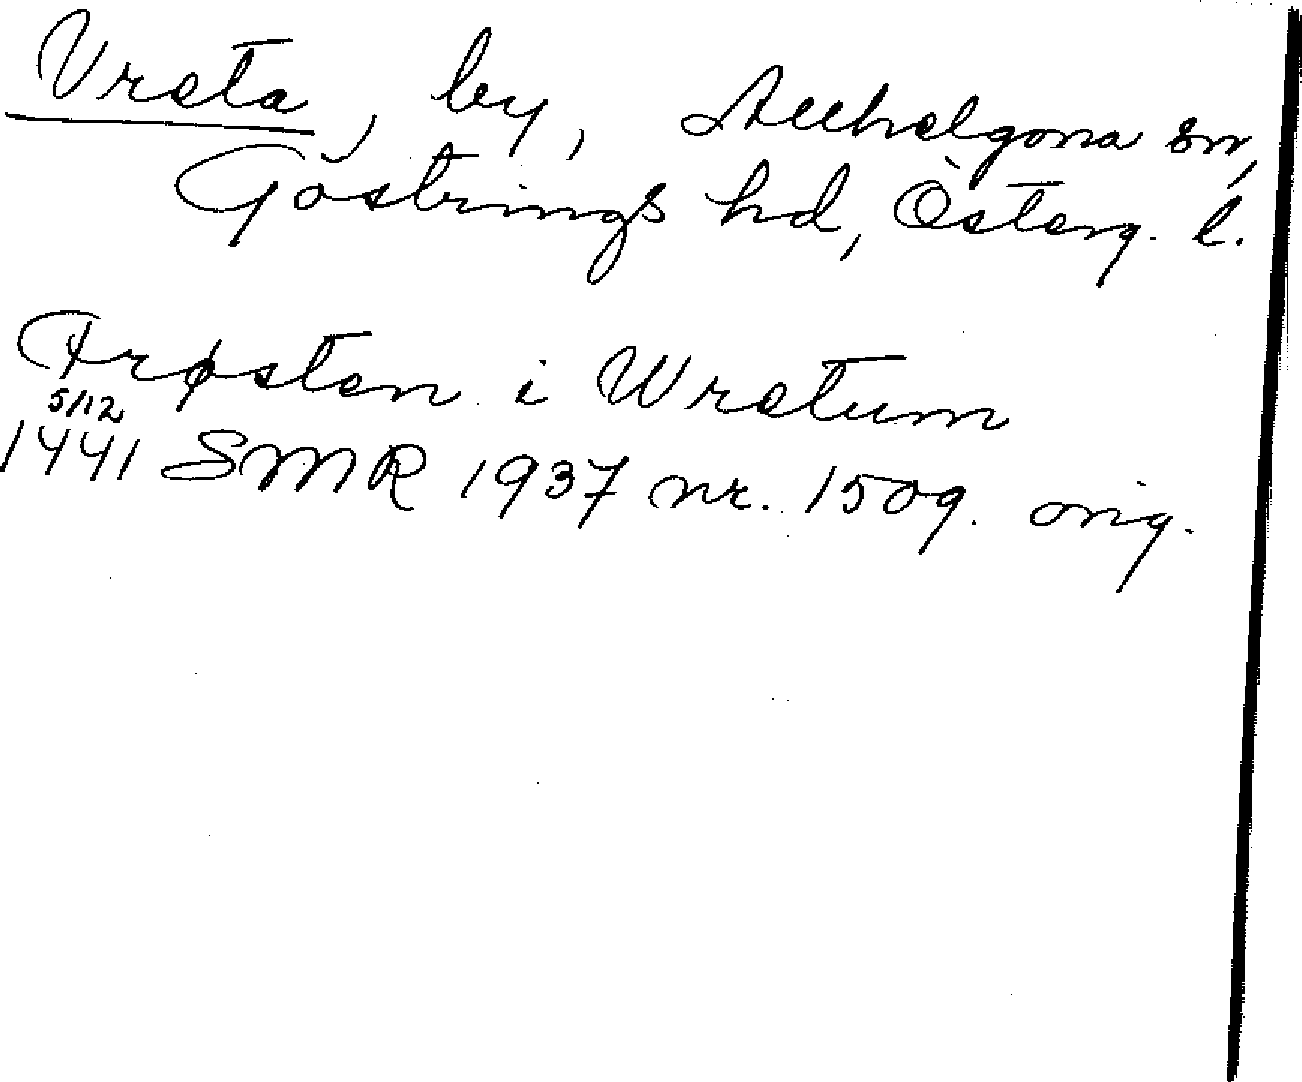 Vreta, by, Allhelgona sn,
Göstrings hd, Österg. l.
Frøsten i Wretum
5/12
1441 SMR 1937 nr. 1509. orig.